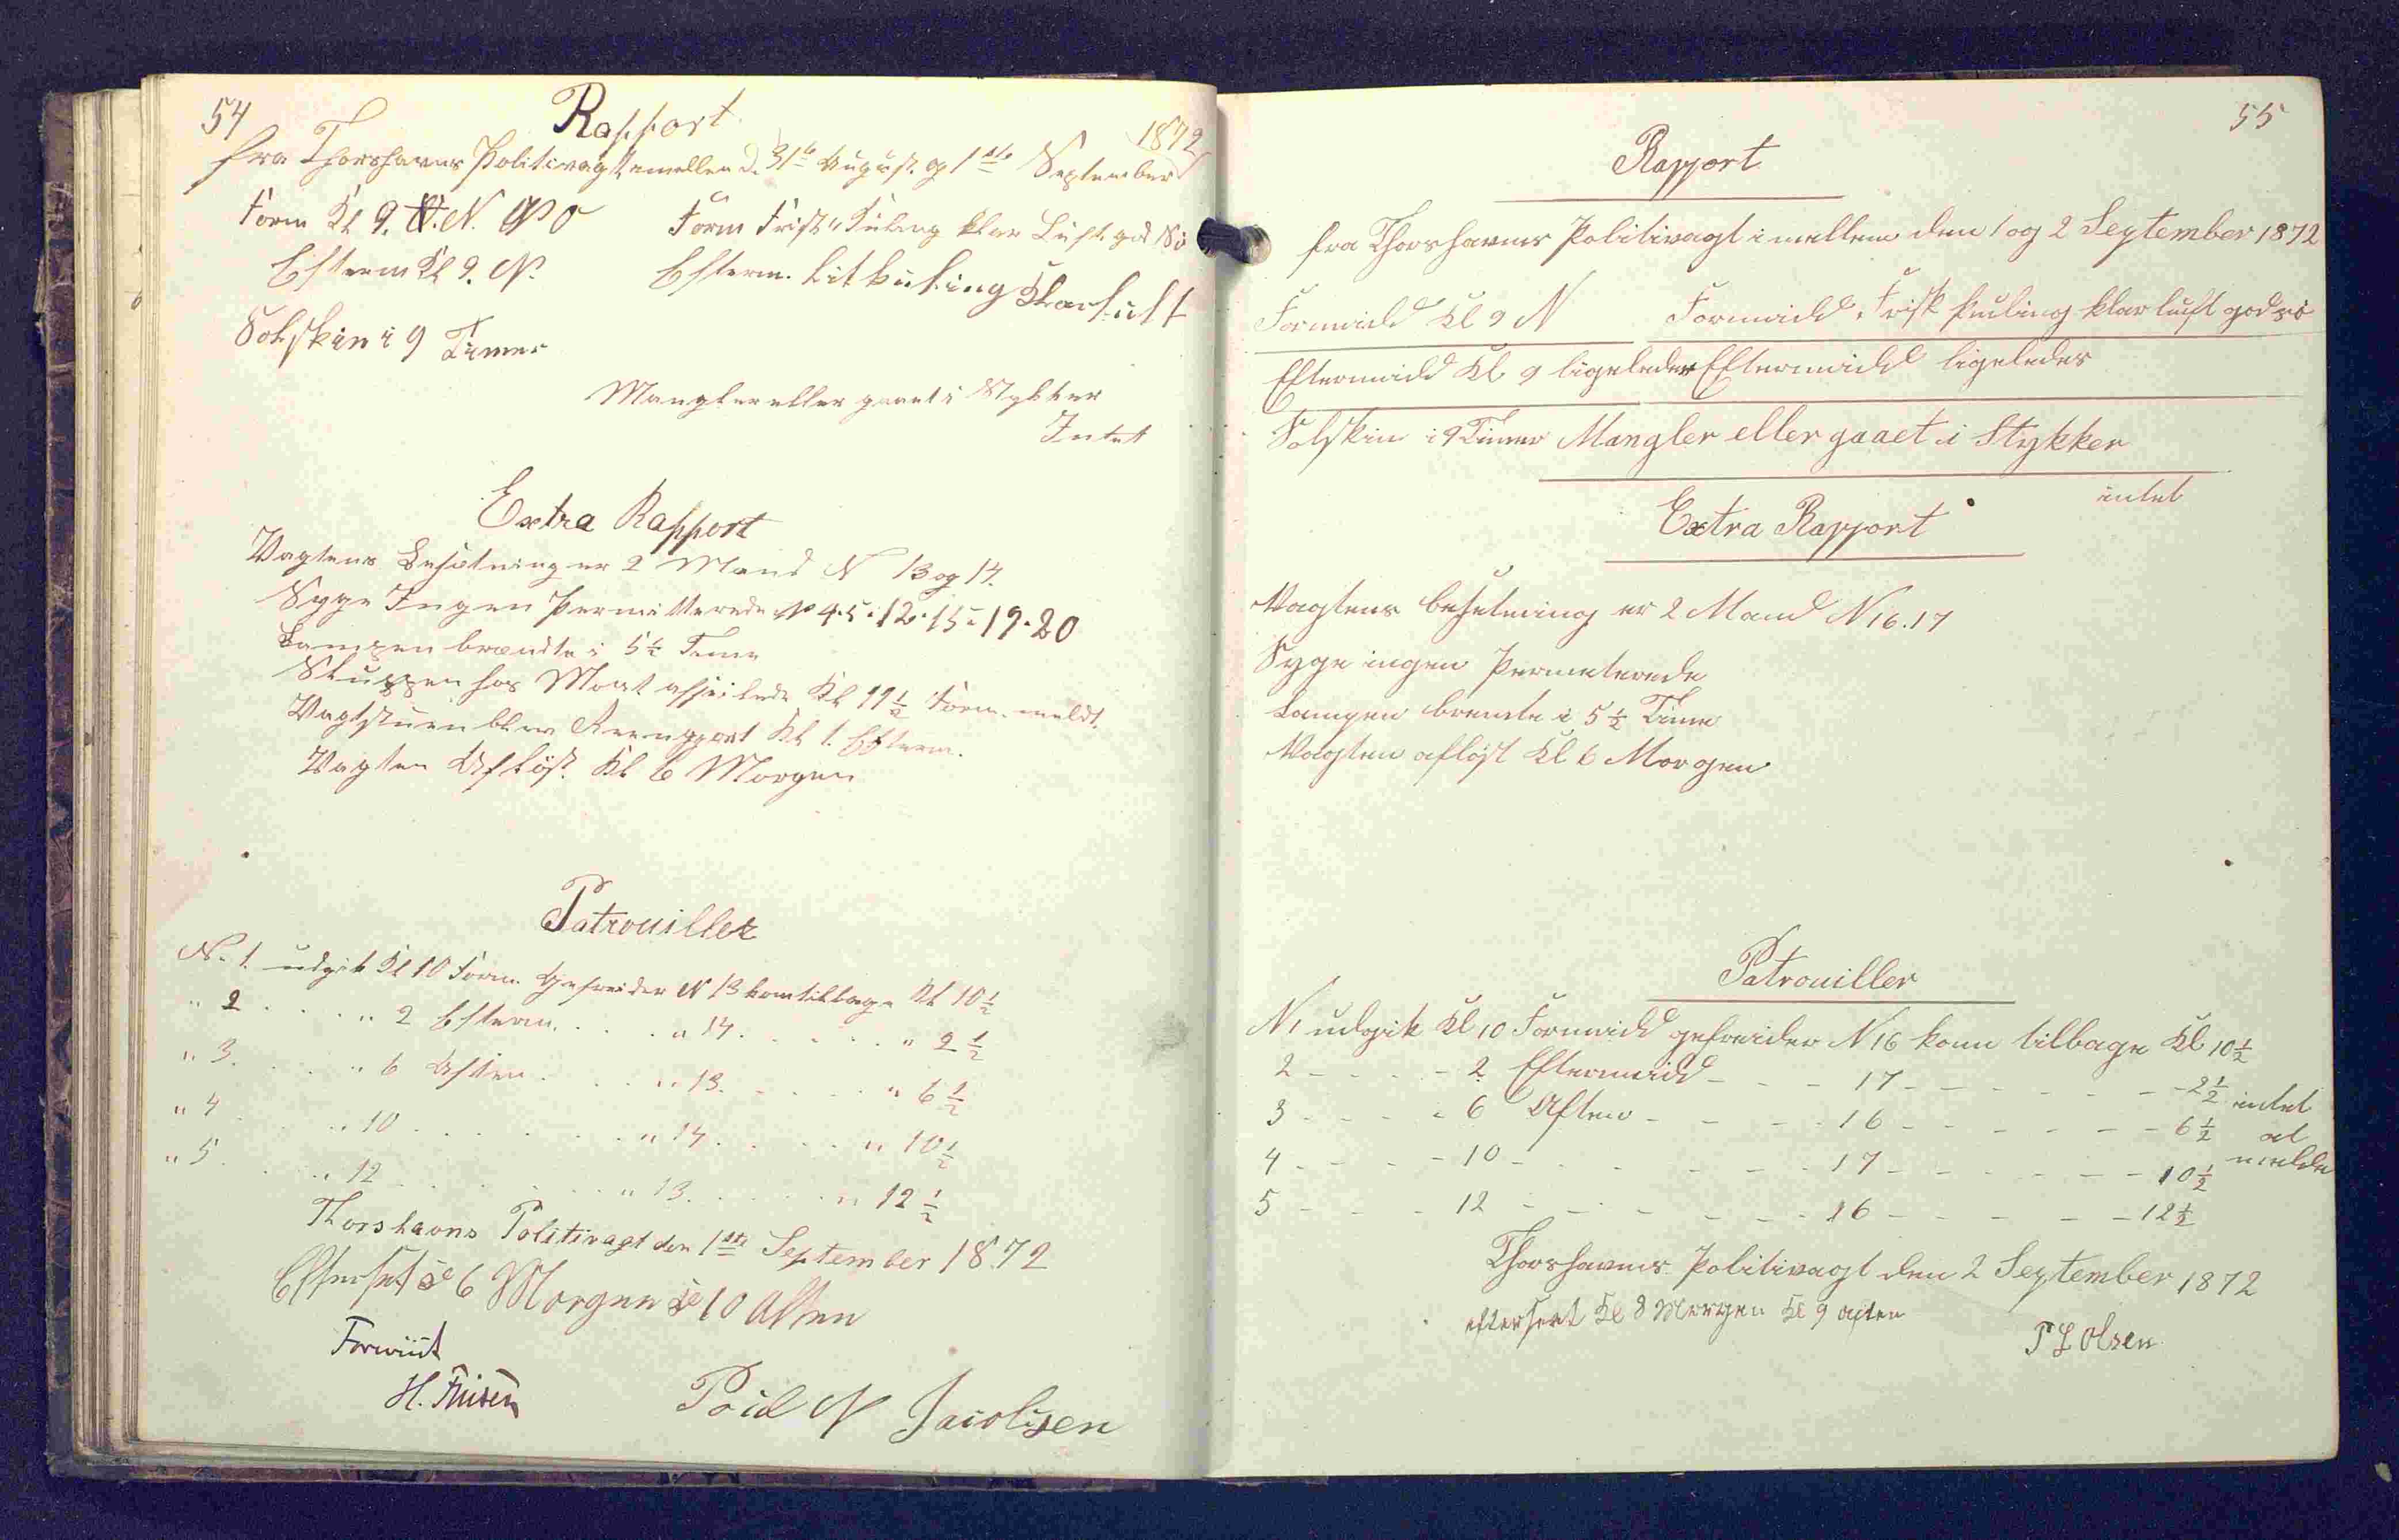 54
Rapport
1872
fra Thorshavns Politivagt imellem d. 31te August og 1ste September
Form Kl 9. N. Form Frisk Kuling klar Luft god Sö
Efterm Kl 9. N. Efterm. Lit kuling Klar luft
Solskin i 9 Timer
Mangler eller gaaet i Stykker
Intet
Extra Rapport
Vagtens Besætning er 2 Mand N 13 og 14.
Syge Ingen Permitterede No 4. 5. 12. 15. 19. 20
Lampen brændte i 5½ Time
Sluppen hos Mort afseilede Kl 11½ Form. meldt.
Vagtstuen blev Reengjort Kl 1. Efterm.
Vagten Aflöst Kl 6 Morgen
Patrouiller
N. 1. udgik Kl 10 Form. Gefreider N 13 kom tilbage Kl 10½
" 2 . . . " 2 Efterm. . . . " 14 . . . . . " 2½
" 3. . . . " 6 Aften . . . " 13. . . . . " 6½
" 4 . . . " 10 . . . . . . " 14 . . . . " 10½
" 5. . . . " 12 . . . . . . " 13. . . . . " 12½
Thorshavns Politivagt den 1ste September 1872
Efterset Kl 6 Morgen Kl 10 Aften
H.
Poul N Jacobsen
55
Rapport
fra Thorshavns Politivagt imellem den 1 og 2 September 1872
Formidd Kl 9 N Formidd. Frisk kuling klar luft god sö
Eftermidd Kl 9 ligeledes Eftermidd ligeledes
Solskin i 9 Timer Mangler eller gaaet i Stykker
intet
Extra Rapport
Vagtens besetning er 2 Mand N 16. 17
Syge ingen Permeterede
Lampen brente i 5½ Time
Vagten aflöst Kl 6 Morgen
Patrouiller
N1 udgik Kl 10 Formidd gefreider N 16 kom tilbage Kl 10½
2 - - - - 2 Eftermidd - - - 17 - - - - - 2½ intet
3 - - - - 6 Aften - - - - 16 - - - - - 6½ at
4 - - - - 10 - - - - - - 17 - - - - - 10½ melde
5 - - - - 12 - - - - - - 16 - - - - - 12½
Thorshavns Politivagt den 2 September 1872
efterseet Kl 8 Morgen Kl 9 aften
P L Olsen